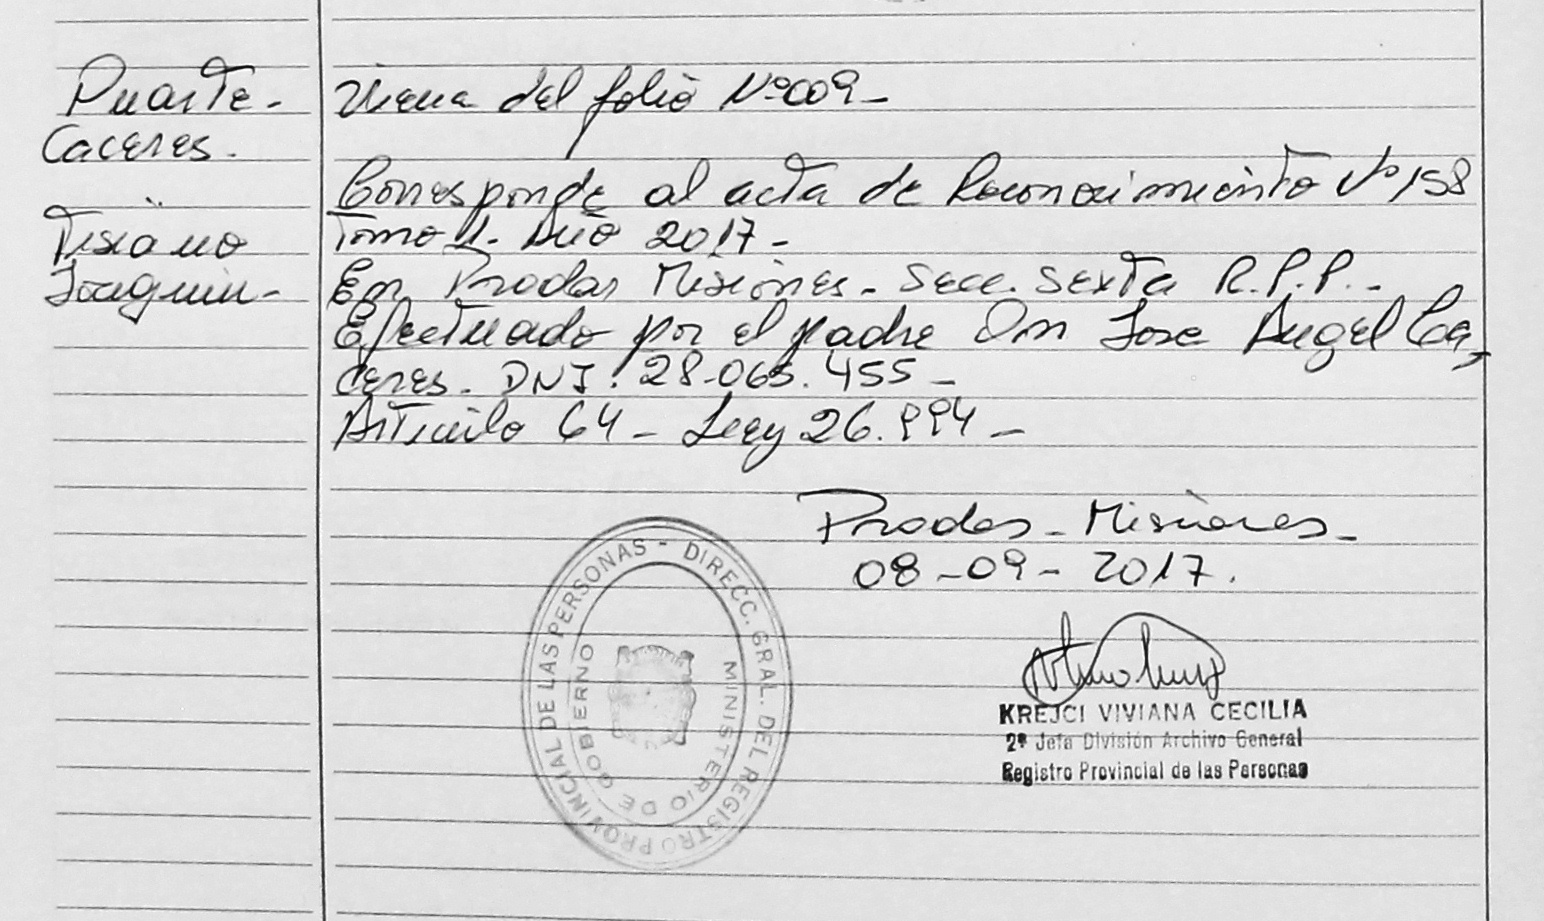 Duarte -
Caceres.
Tisiano
Joaquin -
Viene del folio Nº 009 -
Corresponde al acta de Reconocimiento Nº 158
Tomo 1. Año 2017 -
En Posadas Misiones - Secc. Sexta R.P.P. -
Efectuado por el padre Don Jose Angel Ca,
ceres. DNI. 28.065.455 -
Articulo 64 - Ley 26.994 -
Posadas - Misiones -
08 - 09 - 2017.
DIRECC. GRAL. DEL REGISTRO PROVINCIAL DE LAS PERSONAS -
MINISTERIO DE GOBIERNO
KREJCI VIVIANA CECILIA
2ª Jefa División Archivo General
Registro Provincial de las Personas